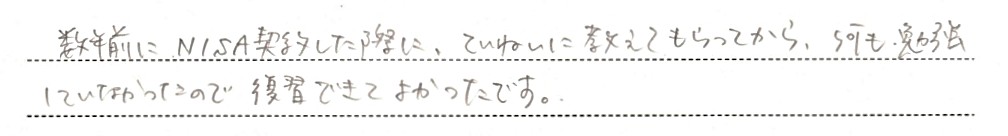 数年前にNISA契約した際に、ていねいに教えてもらってから、何も勉強
していなかったので復習できてよかったです。